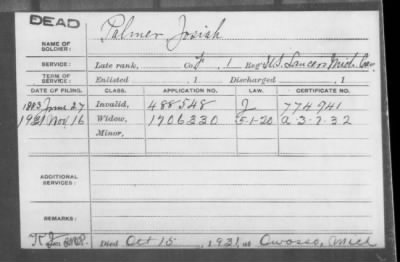 DEAD
NAME OF SOLDIER: Palmer Josiah
SERVICE: Late rank, Co. F, 1 Reg't U.S. Lancers Mich. Cav
TERM OF SERVICE: Enlisted , 1 Discharged , 1
DATE OF FILING. CLASS. APPLICATION NO. LAW. CERTIFICATE NO.
1883 June 27 Invalid, 488548 J 774941
1921 Nov 16 Widow, 1706330 5-1-20 a-3-7-32
Minor,
ADDITIONAL SERVICES:
REMARKS:
Died Oct 15, 1921, at Owosso, Mich